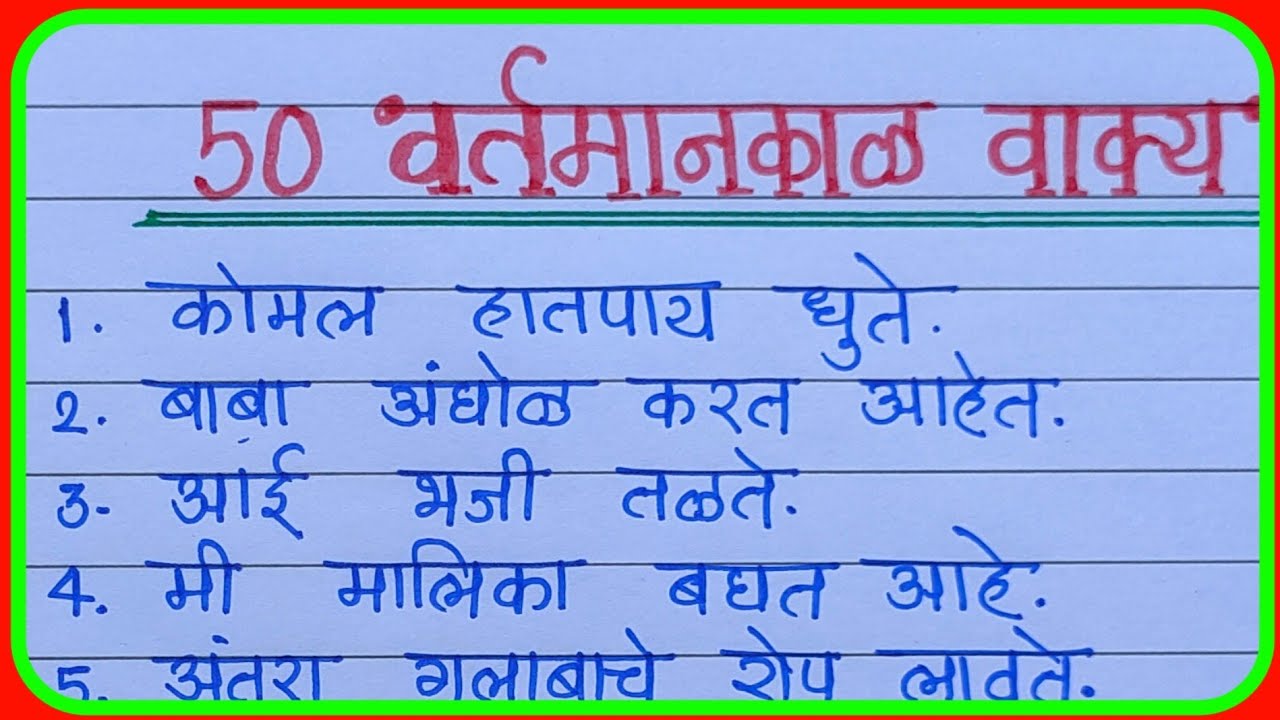 50 वर्तमानकाळ वाक्य
1. कोमल हातपाय धुते.
2. बाबा अंघोळ करत आहेत.
3- आई भजी तळते.
4. मी मालिका बघत आहे.
5. अंतरा गुलाबाचे रोप लावते.